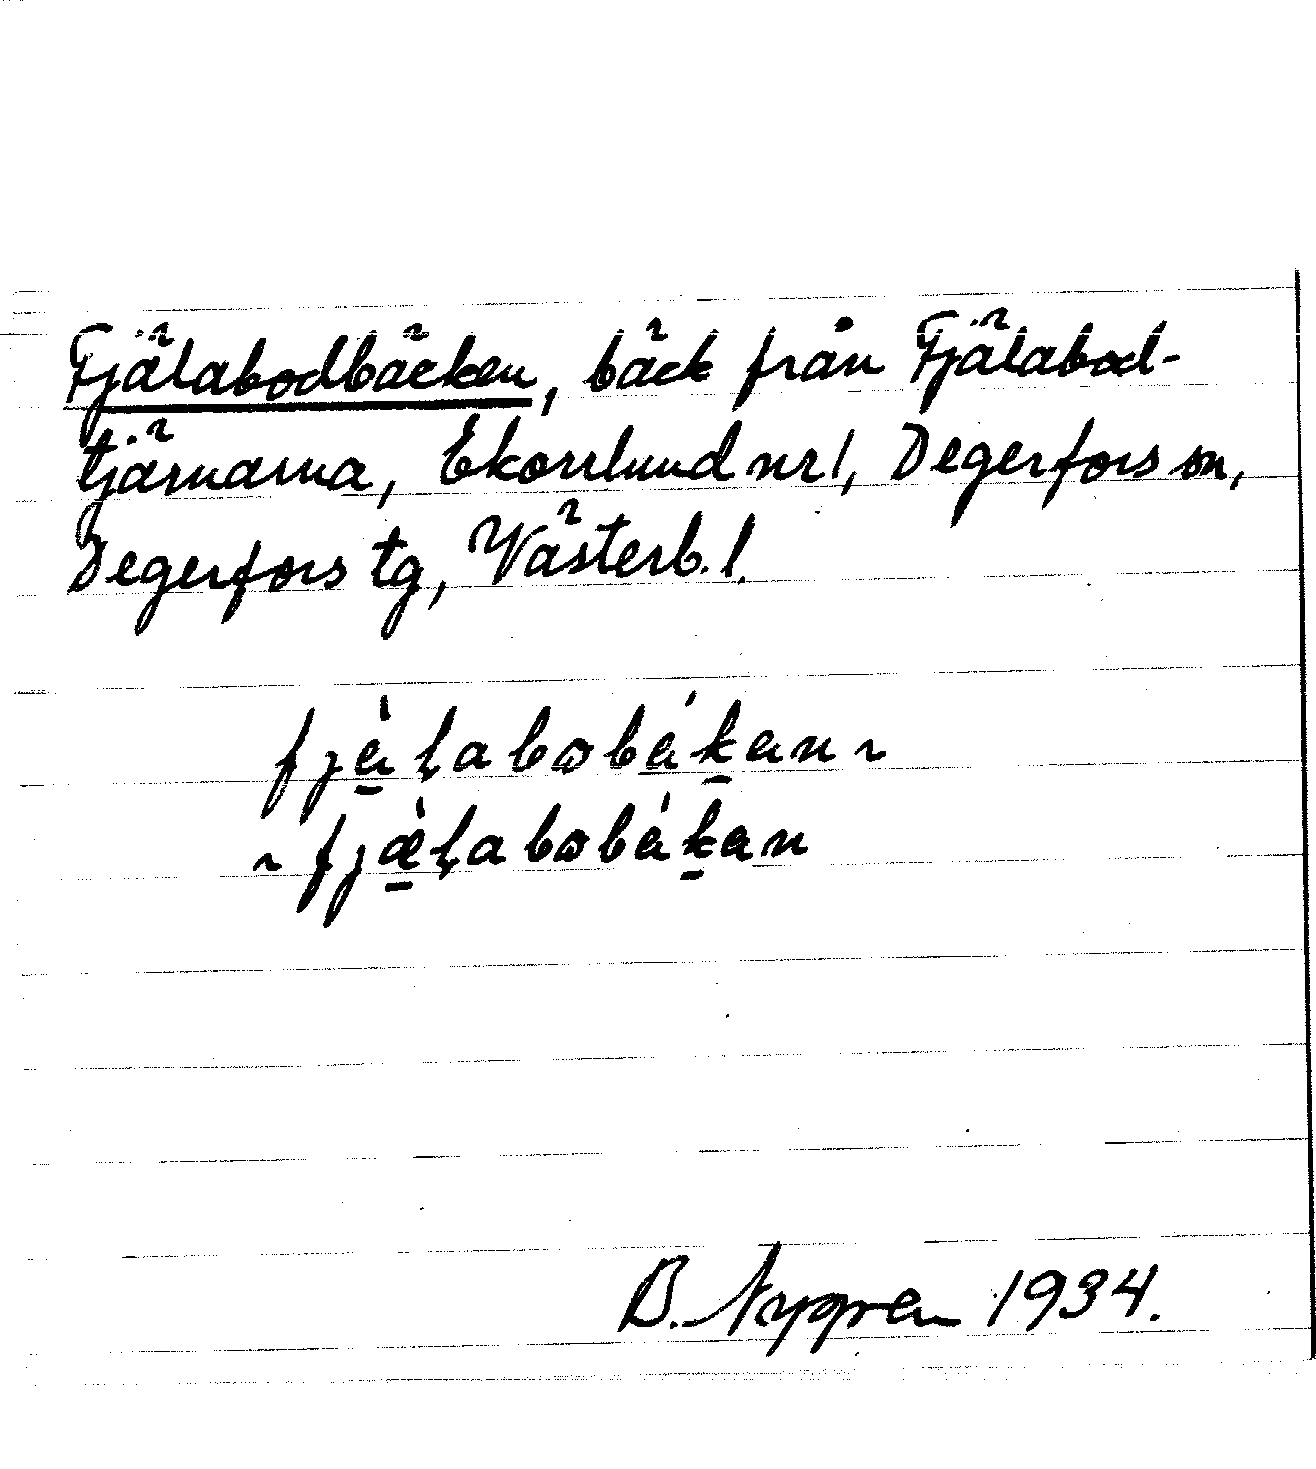 Fjälabodbäcken, bäck från Fjälabod-
tjärnarna, Ekorrlund nr 1, Degerfors sn,
Degerfors tg, Västerb. l.
fjàḷabobákan ~
~ fjæ̀ḷabobákan
B. Nygren 1934.